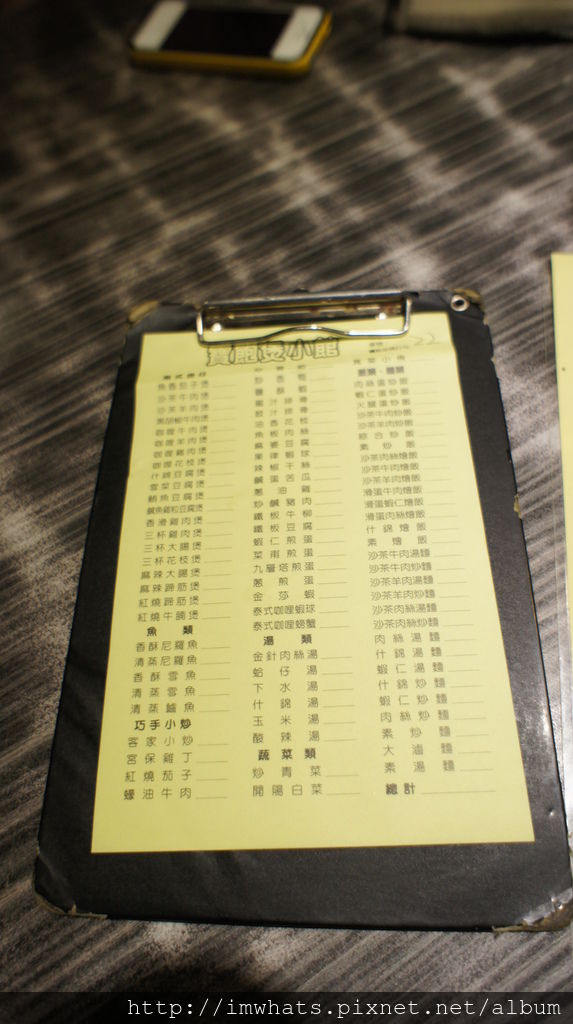 煲小館
魚香茄子煲
沙茶牛肉煲
沙茶羊肉煲
黑胡椒牛肉煲
咖哩牛肉煲
咖哩羊肉煲
咖哩雞肉煲
咖哩花枝煲
什錦豆腐煲
雪菜豆腐煲
鮪魚豆腐煲
鹹魚雞粒豆腐煲
香滑雞肉煲
三杯雞肉煲
三杯大腸煲
三杯花枝煲
麻辣大腸煲
麻辣蹄筋煲
紅燒蹄筋煲
紅燒牛腩煲
魚類
香酥尼羅魚
清蒸尼羅魚
香酥雪魚
清蒸雪魚
清蒸鱸魚
巧手小炒
客家小炒
宮保雞丁
紅燒茄子
蠔油牛肉
鹽酥蝦
蜜汁排骨
豉汁排骨
油香花枝
魚板肉絲
麻婆豆腐
果律蝦球
辣椒干絲
鹹蛋苦瓜
蔥油雞
炒鹹豬肉
鐵板牛柳
鐵板豆腐
蝦仁煎蛋
菜甫煎蛋
九層塔煎蛋
蔥煎蛋
金莎蝦
泰式咖哩蝦球
泰式咖哩螃蟹
湯類
金針肉絲湯
蛤仔湯
下水湯
什錦湯
玉米湯
酸辣湯
蔬菜類
炒青菜
開陽白菜
飯類、麵類
肉絲蛋炒飯
蝦仁蛋炒飯
火腿蛋炒飯
沙茶牛肉炒飯
沙茶羊肉炒飯
綜合炒飯
素炒飯
沙茶肉絲燴飯
沙茶牛肉燴飯
沙茶羊肉燴飯
滑蛋牛肉燴飯
滑蛋蝦仁燴飯
滑蛋肉絲燴飯
什錦燴飯
素燴飯
沙茶牛肉湯麵
沙茶牛肉炒麵
沙茶羊肉湯麵
沙茶羊肉炒麵
沙茶肉絲湯麵
沙茶肉絲炒麵
肉絲湯麵
什錦湯麵
蝦仁湯麵
什錦炒麵
蝦仁炒麵
肉絲炒麵
素炒麵
大滷麵
素湯麵
總計
http://imwhats.pixnet.net/album